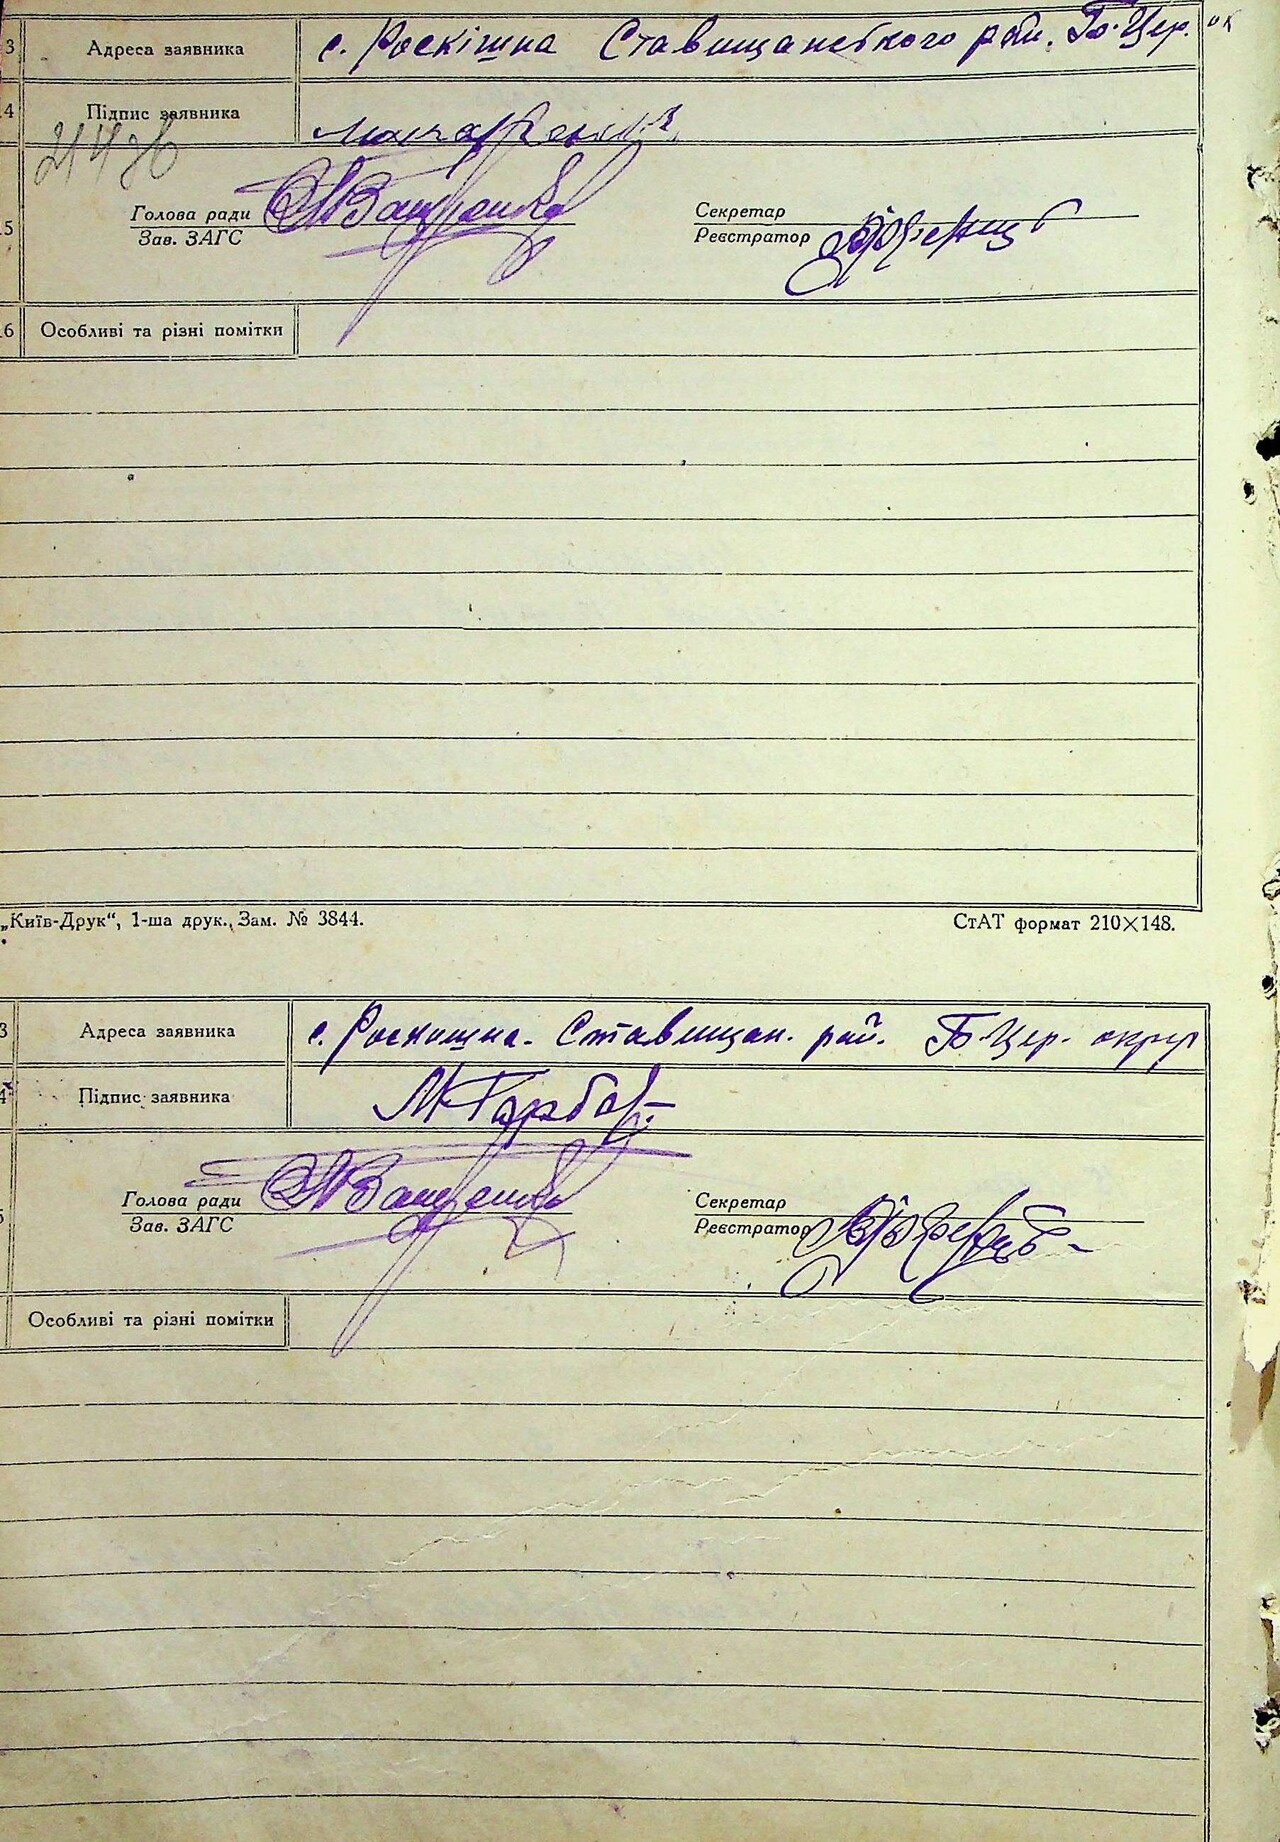 3 Адреса заявника с. Роскішна Ставищанського рай. Б-Цер. ок
4 Підпис заявника
Голова ради Секретар
5
Зав. ЗАГС Реєстратор
6 Особливі та різні помітки
„Київ-Друк“, 1-ша друк., Зам. № 3844. СтАТ формат 210×148.
3 Адреса заявника с. Роскошна. Ставищан. рай. Б-Цер. округ
4 Підпис заявника М Горба
Голова ради Секретар
5
Зав. ЗАГС Реєстратор
Особливі та різні помітки